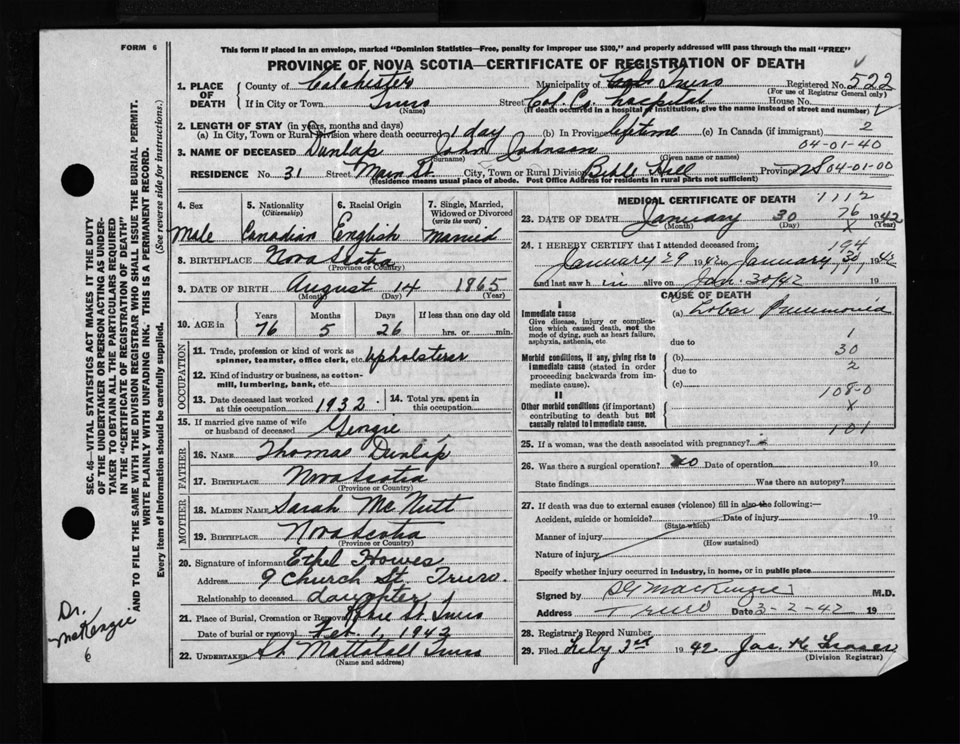 FORM 6
This form if placed in an envelope, marked "Dominion Statistics—Free, penalty for improper use $300," and properly addressed will pass through the mail "FREE"
PROVINCE OF NOVA SCOTIA—CERTIFICATE OF REGISTRATION OF DEATH
1. PLACE OF DEATH County of Colchester Municipality of Truro Registered No. 522
(For use of Registrar General only)
If in City or Town Truro Street Col. Co. hospital House No.
(Name) (If death occurred in hospital, give the name instead of street and number)
2. LENGTH OF STAY (in years, months and days)
(a) In City, Town or Rural Division where death occurred 1 day (b) In Province lifetime (c) In Canada (if immigrant) 2
04-01-40
3. NAME OF DECEASED Dunlap John Johnson
(Surname) (Given name or names)
RESIDENCE No. 31 Street Main St. City, Town or Rural Division Bible Hill Province NS 04-01-00
(Residence means usual place of abode. Post Office Address for residents in rural parts not sufficient)
4. Sex Male
5. Nationality (Citizenship) Canadian
6. Racial Origin English
7. Single, Married, Widowed or Divorced (write the word) Married
8. BIRTHPLACE Nova Scotia
(Province or Country)
9. DATE OF BIRTH August 14 1865
(Month) (Day) (Year)
10. AGE in Years 76 Months 5 Days 26 If less than one day old hrs. or min.
OCCUPATION
11. Trade, profession or kind of work as spinner, teamster, office clerk, etc. Upholsterer
12. Kind of industry or business, as cotton-mill, lumbering, bank, etc.
13. Date deceased last worked at this occupation 1932 14. Total yrs. spent in this occupation
15. If married give name of wife or husband of deceased
FATHER
16. NAME Thomas Dunlap
17. BIRTHPLACE Nova Scotia
(Province or Country)
MOTHER
18. MAIDEN NAME Sarah McNutt
19. BIRTHPLACE Nova Scotia
(Province or Country)
20. Signature of informant Ethel Howes
Address 9 Church St. Truro.
Relationship to deceased daughter
21. Place of Burial, Cremation or Removal St. Truro
Date of burial or removal Feb. 1, 1942
22. UNDERTAKER Truro
(Name and address)
MEDICAL CERTIFICATE OF DEATH 1112
23. DATE OF DEATH January 30 76 1942
(Month) (Day) X (Year)
24. I HEREBY CERTIFY that I attended deceased from: 194
January 29 1942 to January 30, 1942
and last saw him alive on Jan. 30/42
CAUSE OF DEATH
I
Immediate cause
Give disease, injury or complication which caused death, not the mode of dying, such as heart failure, asphyxia, asthenia, etc
(a) Lobar Pneumonia
due to 1
30
Morbid conditions, if any, giving rise to immediate cause (stated in order proceeding backwards from immediate cause).
(b)
due to 2
(c)
108-0
II
Other morbid conditions (if important) contributing to death but not causally related to immediate cause.
X
101
25. If a woman, was the death associated with pregnancy?
26. Was there a surgical operation? No Date of operation 19
State findings Was there an autopsy?
27. If death was due to external causes (violence) fill in also the following:
Accident, suicide or homicide? Date of injury 19
(State which)
Manner of injury
(How sustained)
Nature of injury
Specify whether injury occurred in industry, in home, or in public place
Signed by MacKenzie M.D.
Address Truro Date 3-2-42 19
28. Registrar's Record Number
29. Filed Feby 3rd 1942 Jas. H. Fraser
(Division Registrar)
SEC. 46—VITAL STATISTICS ACT MAKES IT THE DUTY
OF THE UNDERTAKER OR PERSON ACTING AS UNDERTAKER TO OBTAIN ALL THE PARTICULARS REQUIRED
IN THE "CERTIFICATE OF REGISTRATION OF DEATH"
AND TO FILE THE SAME WITH THE DIVISION REGISTRAR WHO SHALL ISSUE THE BURIAL PERMIT.
WRITE PLAINLY WITH UNFADING INK. THIS IS A PERMANENT RECORD.
Every item of information should be carefully supplied. (See reverse side for instructions.)
Dr.
McKenzie
6